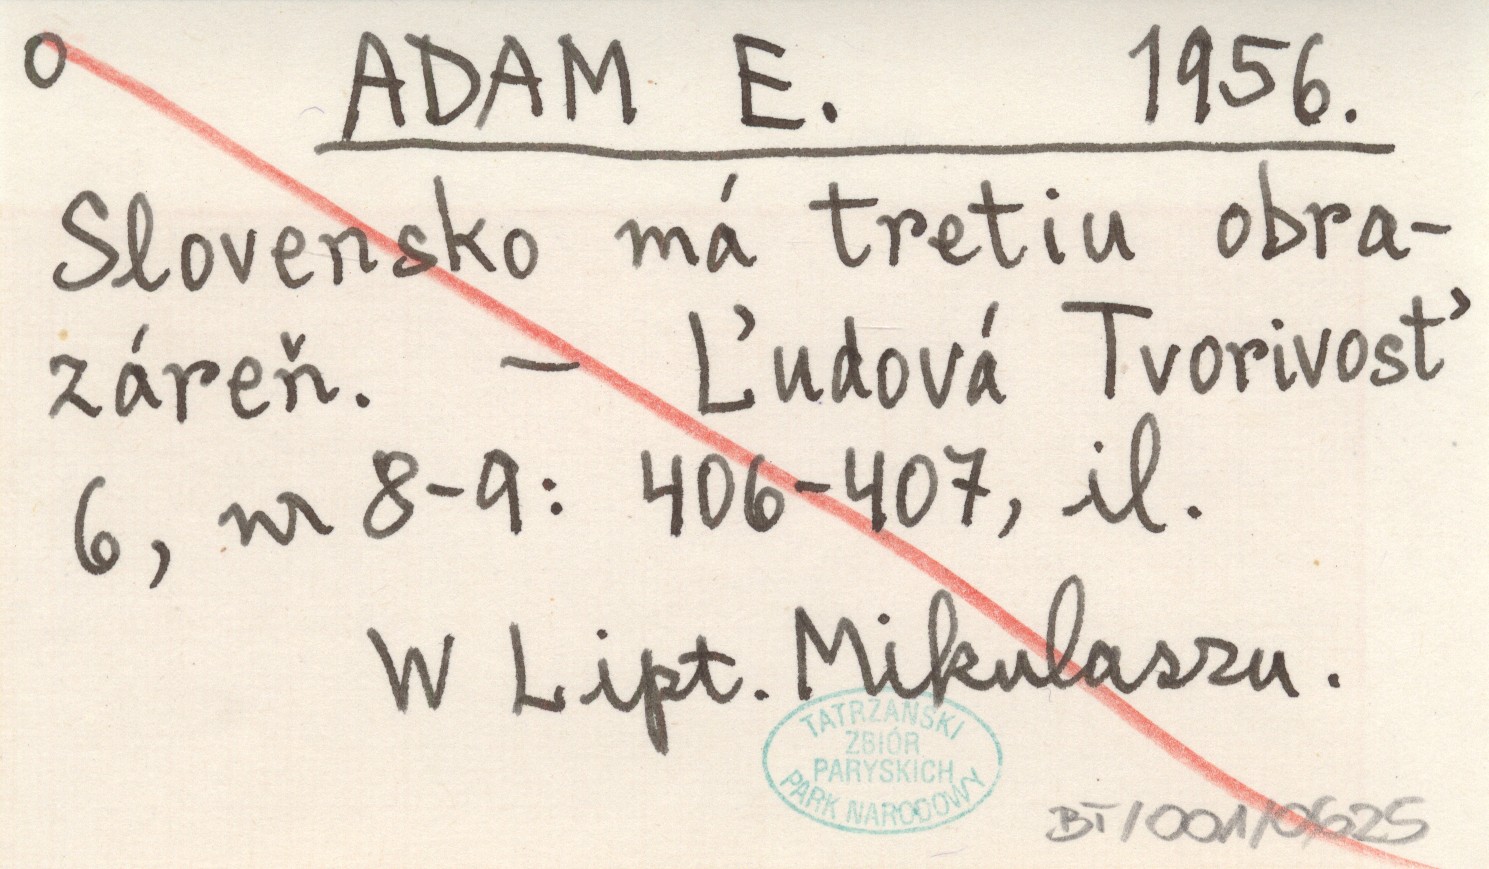 o ADAM E. 1956.
Slovensko má tretiu obra-
záreň. – Ľudová Tvorivosť
6, nr 8-9: 406-407, il.
W Lipt. Mikulaszu.
TATRZAŃSKI
ZBIÓR
PARYSKICH
PARK NARODOWY
BT/001/0625